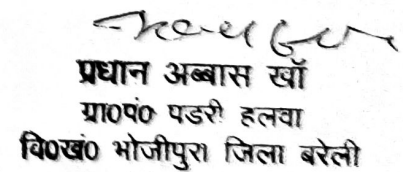 प्रधान अब्बास खाँ
ग्रा०पं० पडरी हलवा
वि०खं० भोजीपुरा जिला बरेली